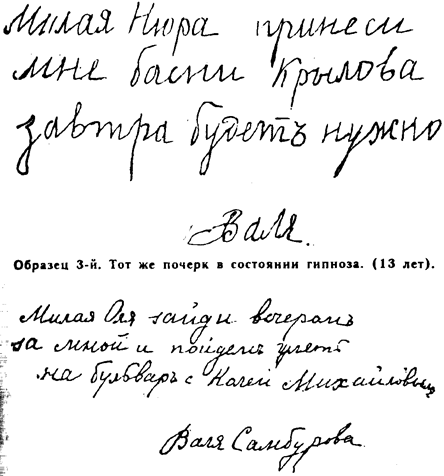 Милая Нюра принеси
мне басни Крылова
завтра будетъ нужно
Валя.
Образец 3-й. Тот же почерк в состоянии гипноза. (13 лет).
Милая Оля зайди вечеромъ
за мной и пойдемъ
на бульваръ с Колей Михайловы
Валя Самбурова